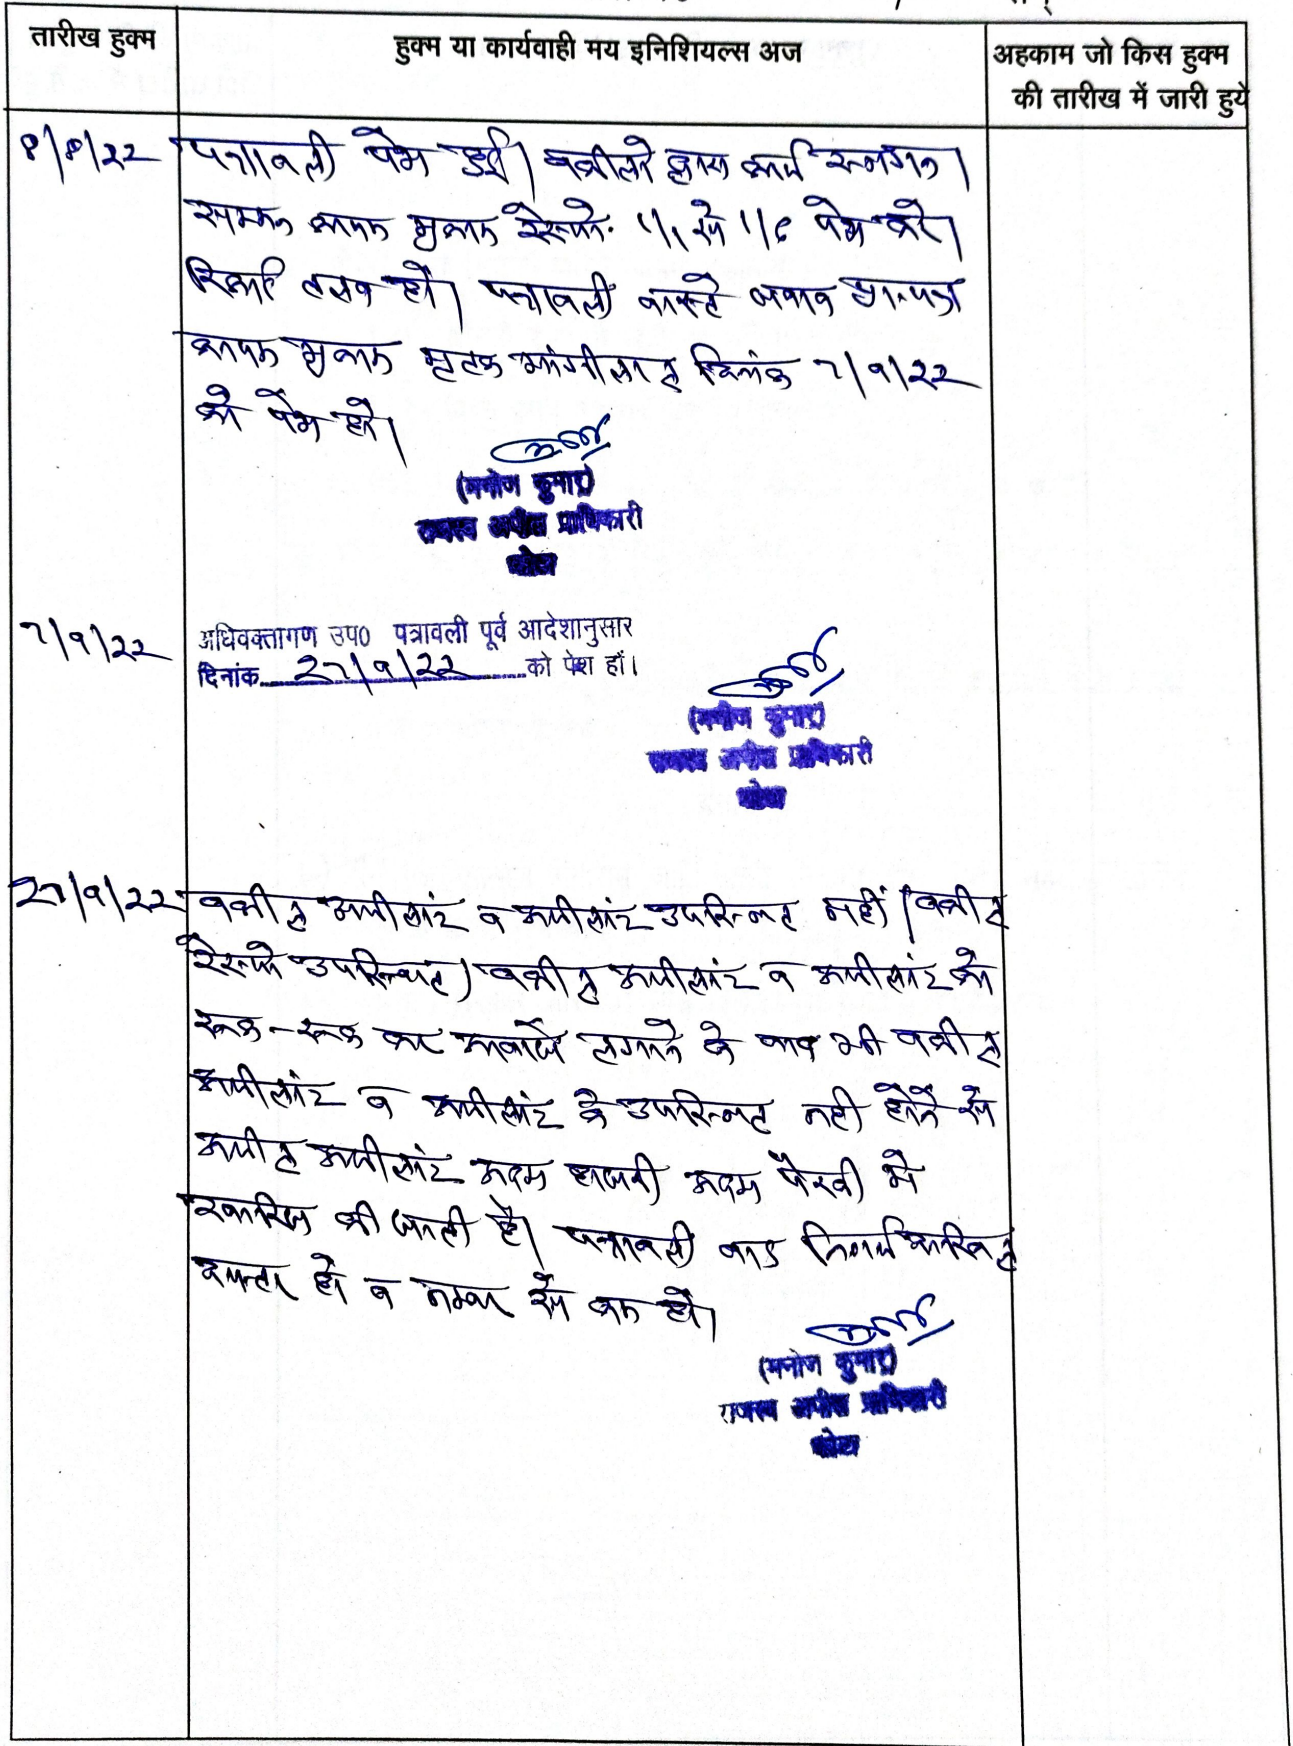 तारीख हुक्म
हुक्म या कार्यवाही मय इनिशियल्स अज
अहकाम जो किस हुक्म
की तारीख में जारी हुये
8/8/22
पत्रावली पेश हुई। वकीलो द्वारा कार्य स्थगन।
सम्मन कायम मुकाम रेस्पो. 1/1 से 1/6 पेश करे।
रिकार्ड तलब हो। पत्रावली वास्ते जवाब प्रा.पत्र
कायम मुकाम मृतक मांगीलाल दिनांक 7/9/22
को पेश हो।
(मनोज कुमार)
राजस्व अपील प्राधिकारी
कोटा
7/9/22
अधिवक्तागण उप0 पत्रावली पूर्व आदेशानुसार
दिनांक 27/9/22 को पेश हों।
(मनोज कुमार)
राजस्व अपील प्राधिकारी
कोटा
27/9/22
वकील अपीलांट व अपीलांट उपस्थित नहीं। वकील
रेस्पो उपस्थित। वकील अपीलांट व अपीलांट को
रूक-रूक कर आवाजे लगाने के बाद भी वकील
अपीलांट व अपीलांट के उपस्थित नही होने से
अपील अपीलांट अदम हाजरी अदम पैरवी मे
खारिज की जाती है। पत्रावली बाद निर्णय दाखिल
दफ्तर हो व नम्बर से कम हो।
(मनोज कुमार)
राजस्व अपील प्राधिकारी
कोटा